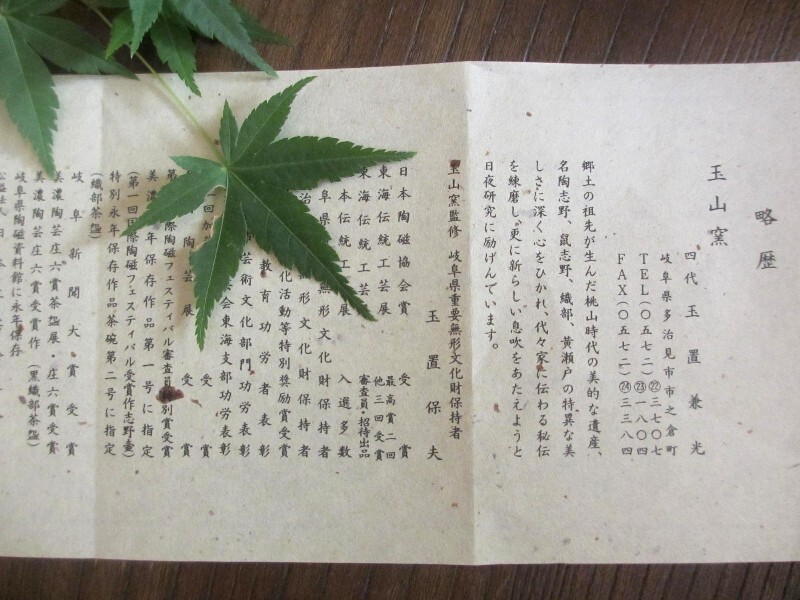 略歴
玉山窯
四代 玉置兼光
岐阜県多治見市市之倉町
TEL(〇五七二)㉒三七〇七
㉓一八〇四
FAX(〇五七二)㉔三三八四
郷土の祖先が生んだ桃山時代の美的な遺産、
名陶志野、鼠志野、織部、黄瀬戸の特異な美
しさに深く心をひかれ、代々家に伝わる秘伝
を練磨し、更に新らしい息吹をあたえようと
日夜研究に励げんでいます。
玉山窯監修 岐阜県重要無形文化財保持者
玉置保夫
日本陶磁協会賞 受賞
東海伝統工芸展 最高賞二回
他三回受賞
審査員・招待出品
本伝統工芸展 入選多数
阜県 無形文化財保持者
治 形文化財保持者
化活動等特別奨励賞受賞
教育功労者表彰
芸術文化部門功労表彰
会東海支部功労表彰
回 受賞
陶芸展 受賞
(第一回 際陶磁フェスティバル審査員特別賞受賞
美濃 年保存作品第一号に指定
(第一回国際陶磁フェスティバル受賞作志野
特別永年保存作品茶碗第二号に指定
(織部茶盌)
岐阜新聞大賞受賞
美濃陶芸庄六賞茶盌展・庄六賞受賞
美濃陶芸庄六賞受賞作(黒織部茶盌)
岐阜県陶磁資料館に永年保存